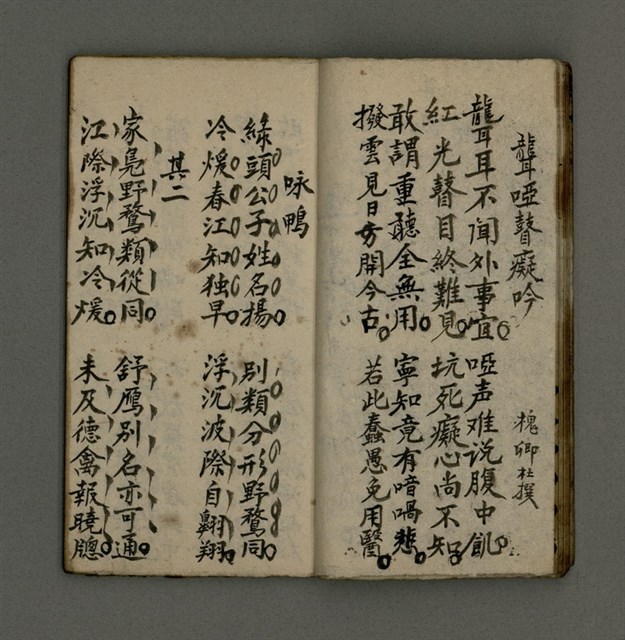 聾啞瞽癡吟　槐卿杜撰
聾耳不闻外事宜　啞声难说腹中飢
紅光瞽目終難見　坑死癡心尚不知
敢謂重聽全無用　寧知竟有喑喎悲
撥雲見日方開今古　若此蠢愚免用醫
咏鴨
綠頭公子姓名揚　別類分形野鶩同
冷煖春江知独早　浮沉波際自翱翔
其二
家鳧野鶩類從同　舒鴈別名亦可通
江際浮沉知冷煖　未及德禽報曉聰